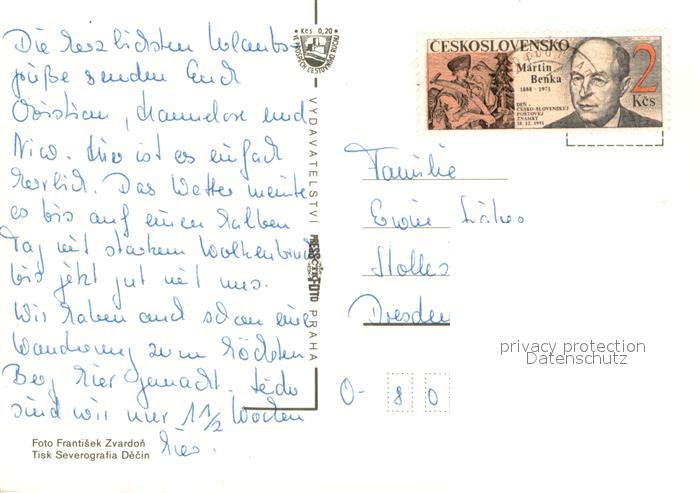 Die herzlichsten Urlaubs-
grüße senden Euch
Christian, Hannelore und
Nico. Hier ist es einfach
herrlich. Das Wetter meinte
es bis auf einen halben
Tag mit starkem Wolkenbruch
bis jetzt gut mit uns.
Wir haben auch schon eine
Wanderung zum höchsten
Berg hier gemacht. Leider
sind wir nur 1 1/2 Wochen
hier.
Foto František Zvardoň
Tisk Severografia Děčín
Kčs 0,20
VE PROSPĚCH CESTOVNÍHO RUCHU
VYDAVATELSTVÍ PRESSFOTO PRAHA
ČESKOSLOVENSKO
Martin
Benka
1888 - 1971
DEŇ
ČESKO-SLOVENSKEJ
POŠTOVEJ
ZNÁMKY
18.12.1991
2
Kčs
Familie
Erwin
Dresden
O- 8 0
privacy protection
Datenschutz